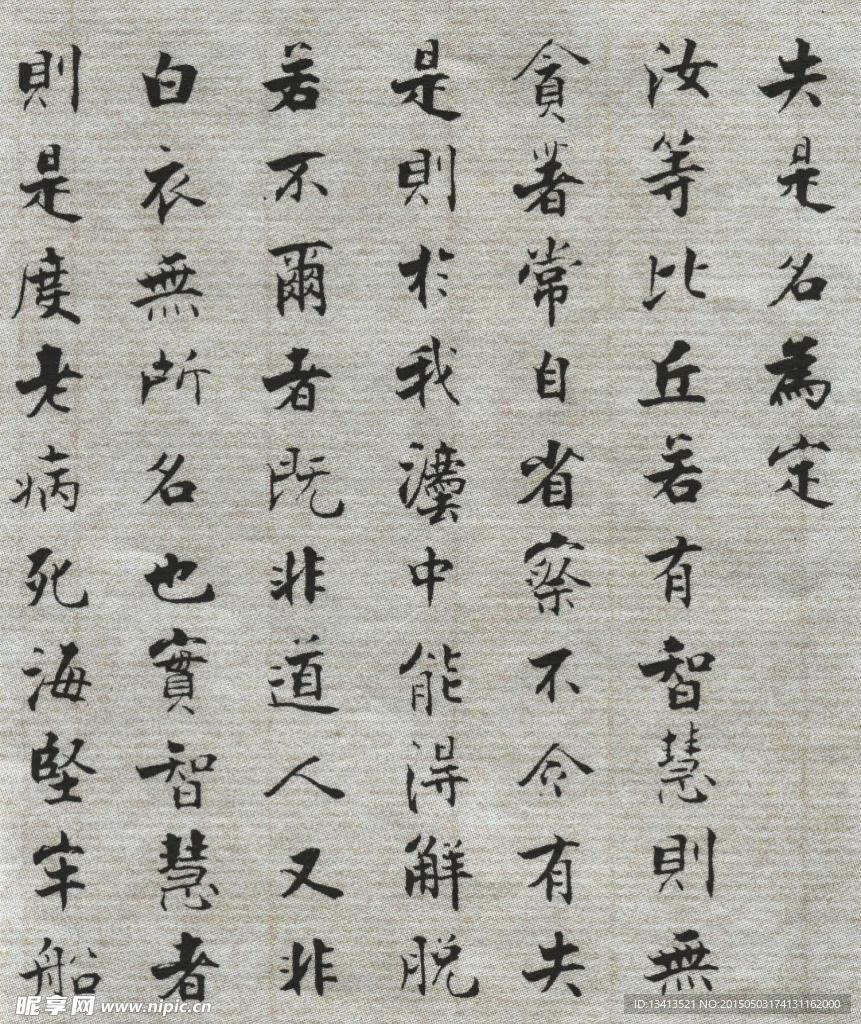 失是名為定
汝等比丘若有智慧則無
貪著常自省察不令有失
是則於我灋中能得解脫
若不爾者既非道人又非
白衣無所名也實智慧者
則是度老病死海堅牢船
昵享网 www.nipic.cn
ID:13413521 NO:20150503174131162000